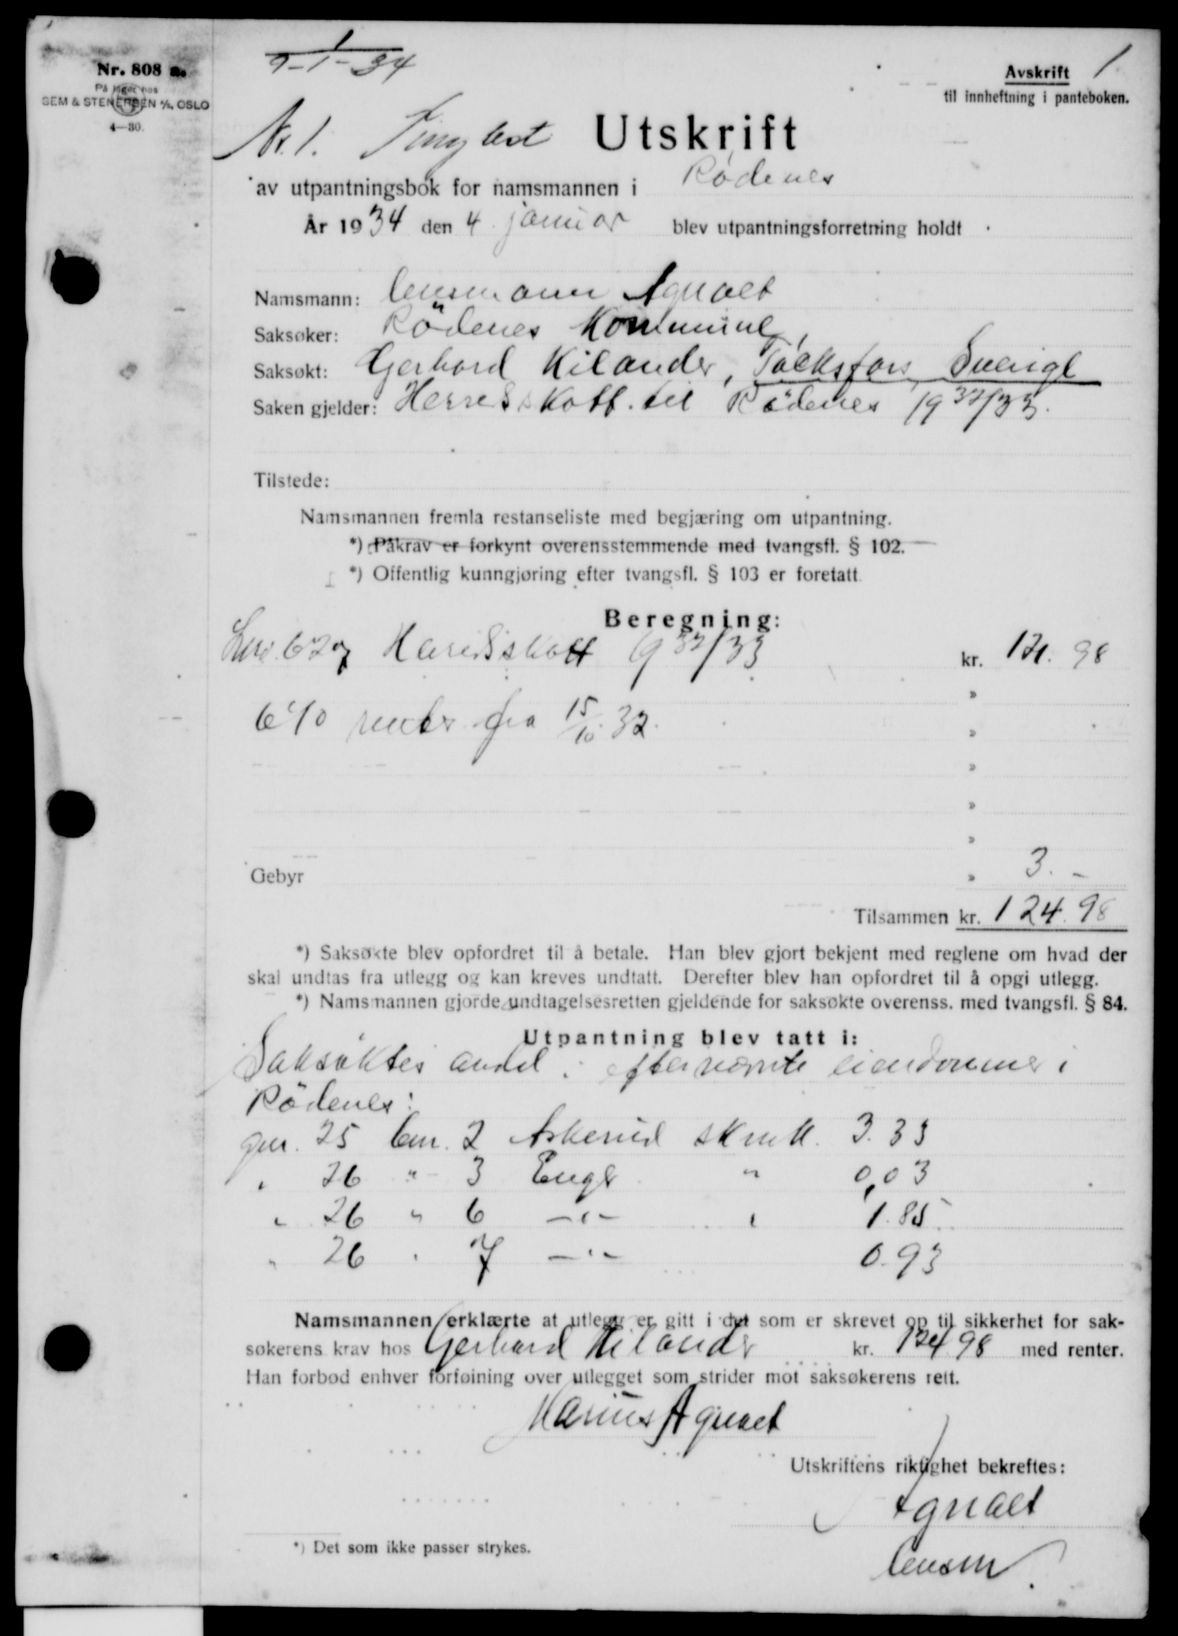 Nr. 808 a.
På lager hos
SEM & STENERSEN A/S, OSLO
4—30.
9-1-34
Avskrift 1
til innheftning i panteboken.
Nr. 1. Tinglest Utskrift
av utpantningsbok for namsmannen i Rödenes
År 1934 den 4. januar blev utpantningsforretning holdt
Namsmann: lensmann Agnalt
Saksøker: Rödenes Kommune,
Saksøkt: Gerhard Kilander, Töcksfors, Sverige
Saken gjelder: Herredsskatt til Rödenes 1932/33.
Tilstede:
Namsmannen fremla restanseliste med begjæring om utpantning.
*) Påkrav er forkynt overensstemmende med tvangsfl. § 102.
*) Offentlig kunngjøring efter tvangsfl. § 103 er foretatt
Beregning:
Lnr. 627 Herredsskatt 1932/33 kr. 121. 98
6 % renter fra 15/10. 32. »
»
»
»
»
Gebyr » 3. -
Tilsammen kr. 124. 98
*) Saksøkte blev opfordret til å betale. Han blev gjort bekjent med reglene om hvad der
skal undtas fra utlegg og kan kreves undtatt. Derefter blev han opfordret til å opgi utlegg.
*) Namsmannen gjorde undtagelsesretten gjeldende for saksøkte overenss. med tvangsfl. § 84.
Utpantning blev tatt i:
Saksöktes andel i efternevnte eiendommer i
Rödenes:
gnr. 25 bnr. 2 Askerud skmk. 3. 33
" 26 " 3 Enger " 0,03
" 26 " 6 -"- " 1. 85
" 26 " 7 -"- 0. 93
Namsmannen erklærte at utlegg er gitt i det som er skrevet op til sikkerhet for sak-
søkerens krav hos Gerhard Kilander kr. 124 98 med renter.
Han forbød enhver forføining over utlegget som strider mot saksøkerens rett.
Marius Agnalt
Utskriftens riktighet bekreftes:
Agnalt
lensm.
*) Det som ikke passer strykes.